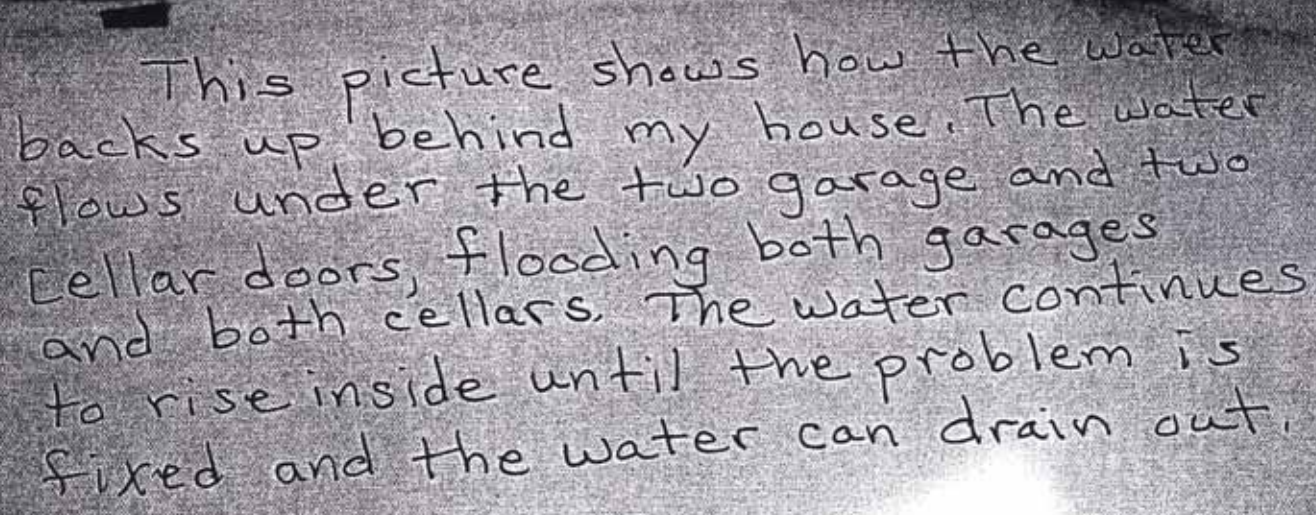 This picture shows how the water
backs up behind my house. The water
flows under the two garage and two
cellar doors, flooding both garages
and both cellars. The water continues
to rise inside until the problem is
fixed and the water can drain out.